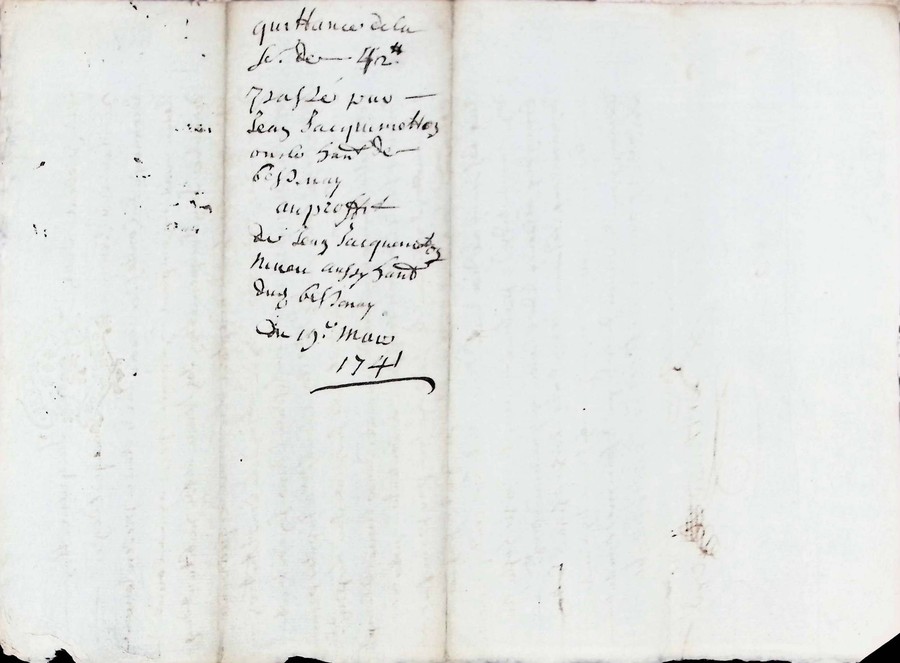 quittance de la
so. de 42#
passé par
Jean Jacquemetton
oncle hant de
bessenay
au proffit
de Jean Jacquemetton
neveu aussy hant
dud bessenay
Du 19e Mars
1741